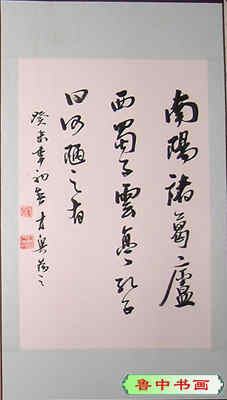 南陽諸葛廬
西蜀子雲亭孔子
曰何陋之有
癸未
鲁中书画